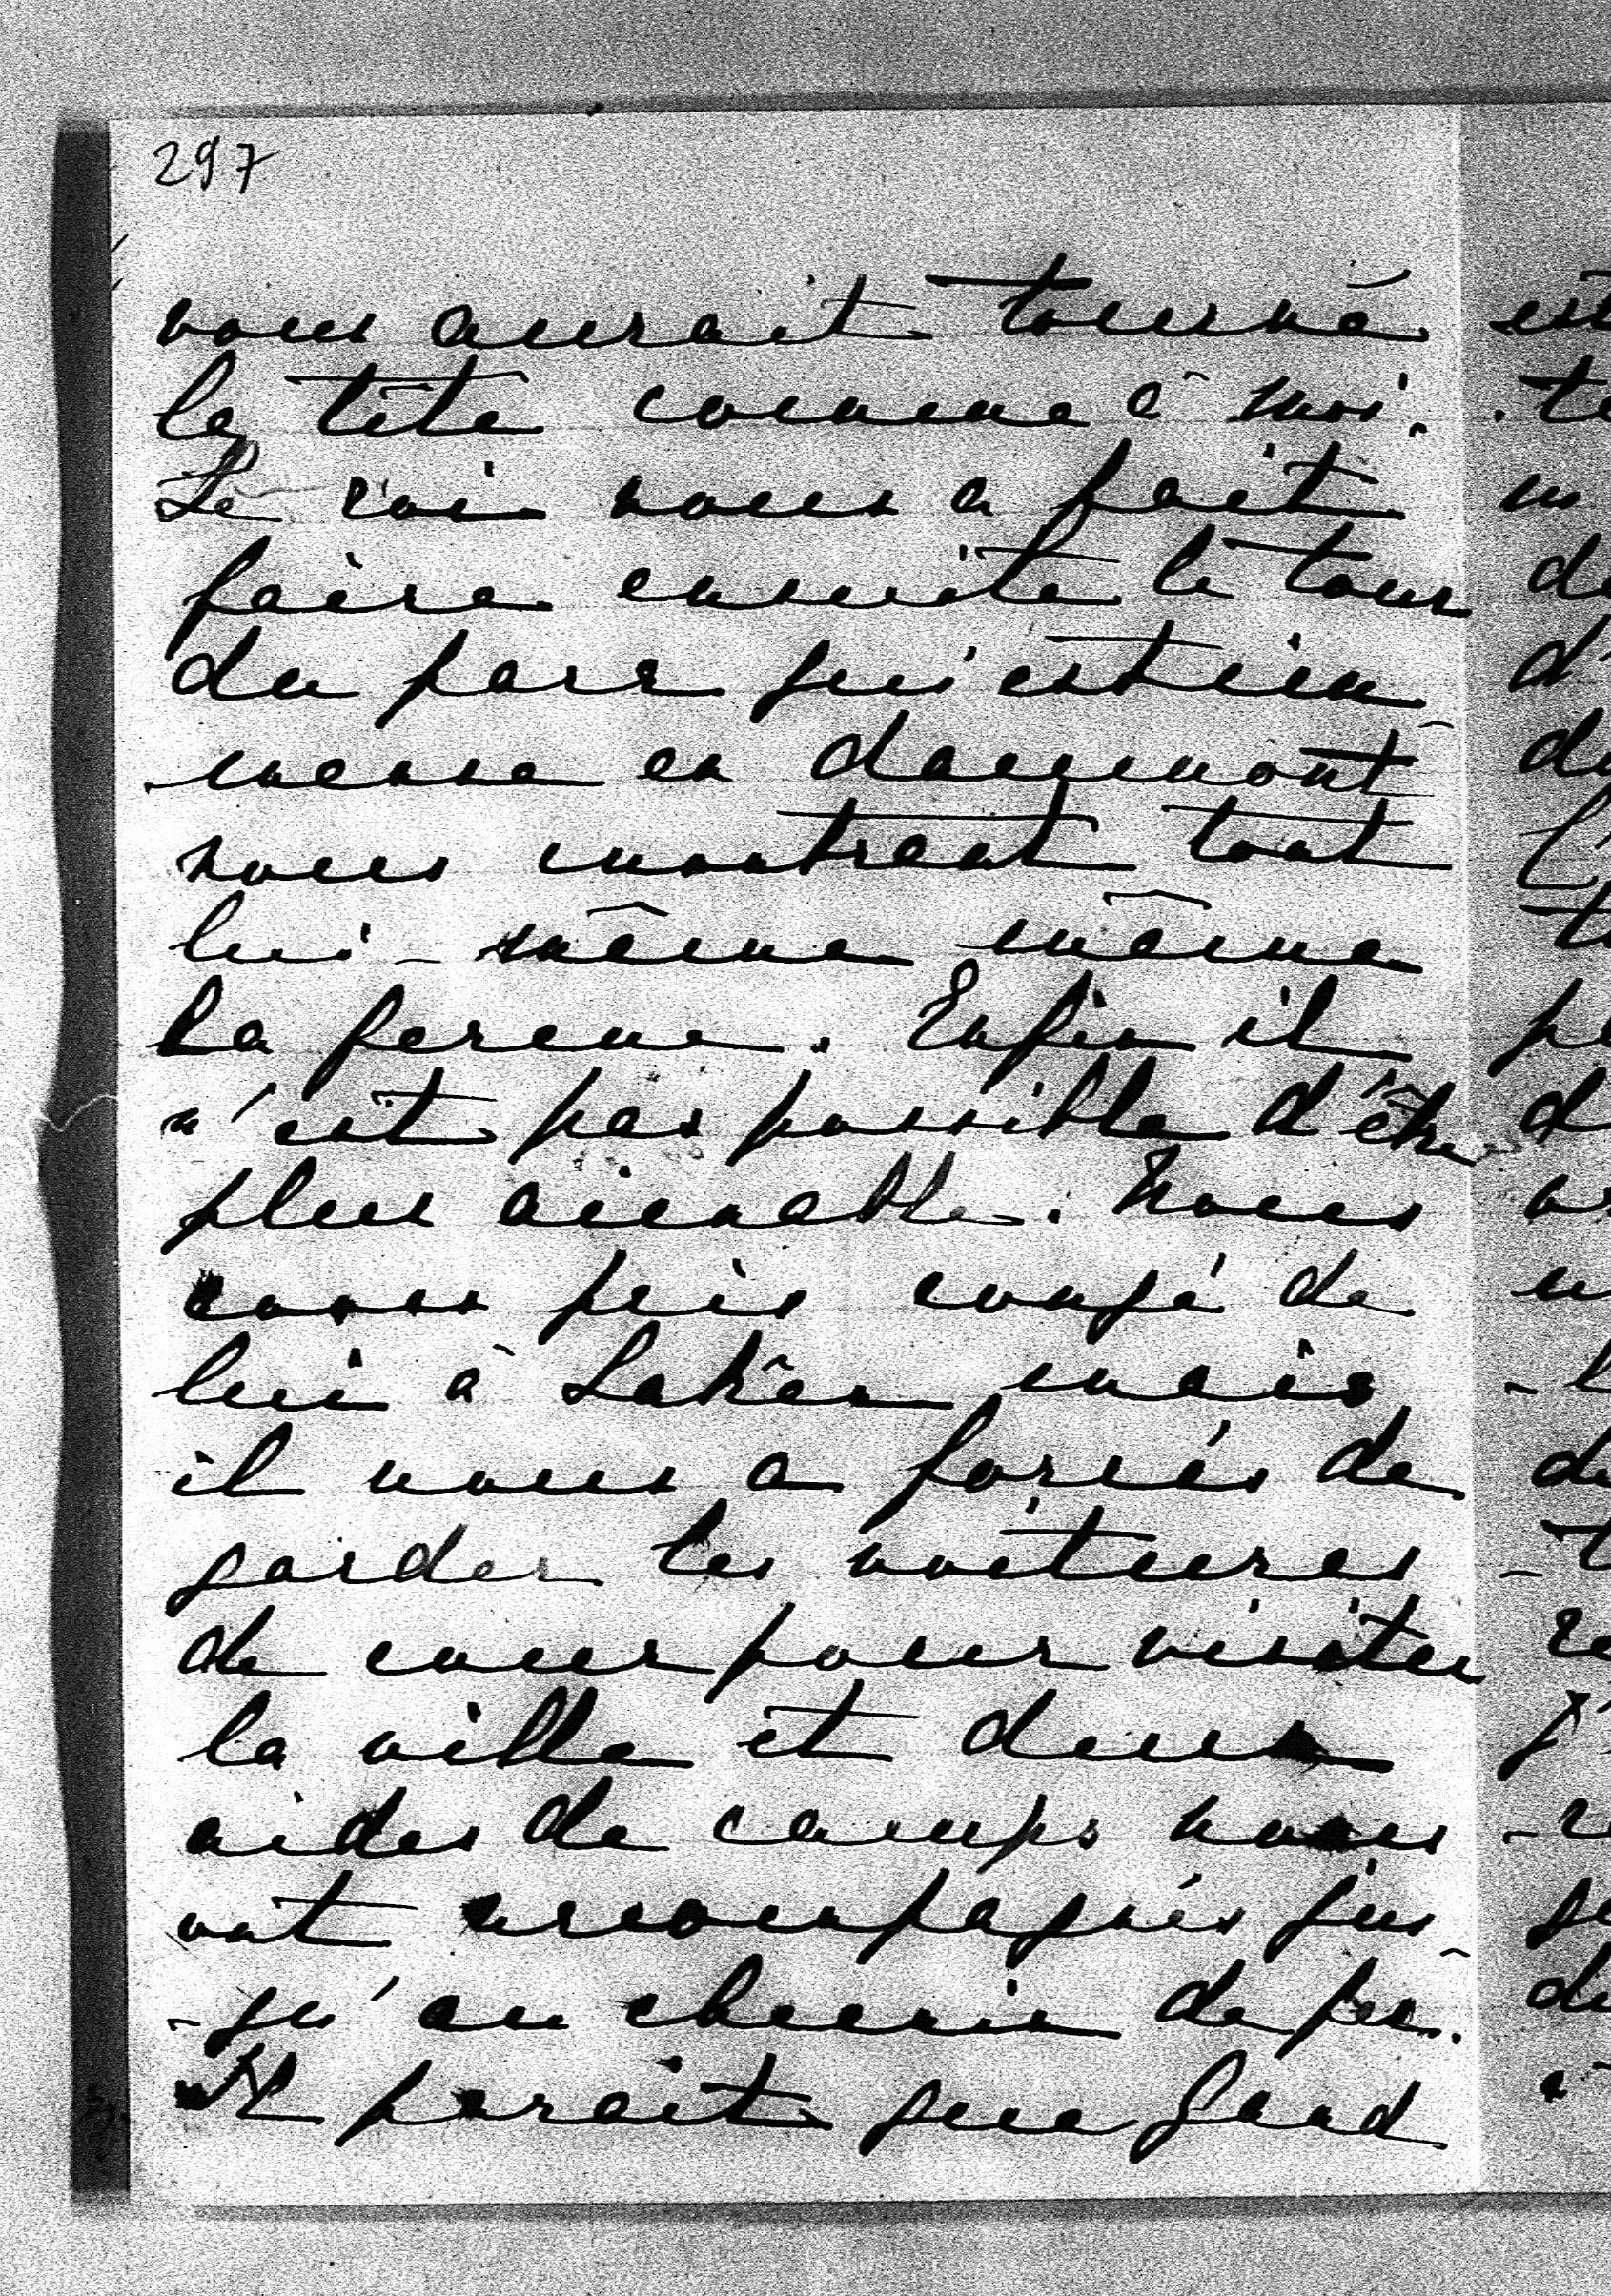 297
vous aurait tourné
la tête comme à moi.
Le roi nous a fait
faire ensuite le tour
du parc qui est im
-mense en daumont
nous montrant tout
lui-même même
la ferme. Enfin il
n'est pas possible d'être
plus aimable. Nous
avons pris congé de
lui à Laken mais
il nous a forcés de
garder les voitures
de cour pour visiter
la ville et deux
aides de camps nous
ont accompagnés jus
-qu'au chemin de fer.
Il parait que Gand